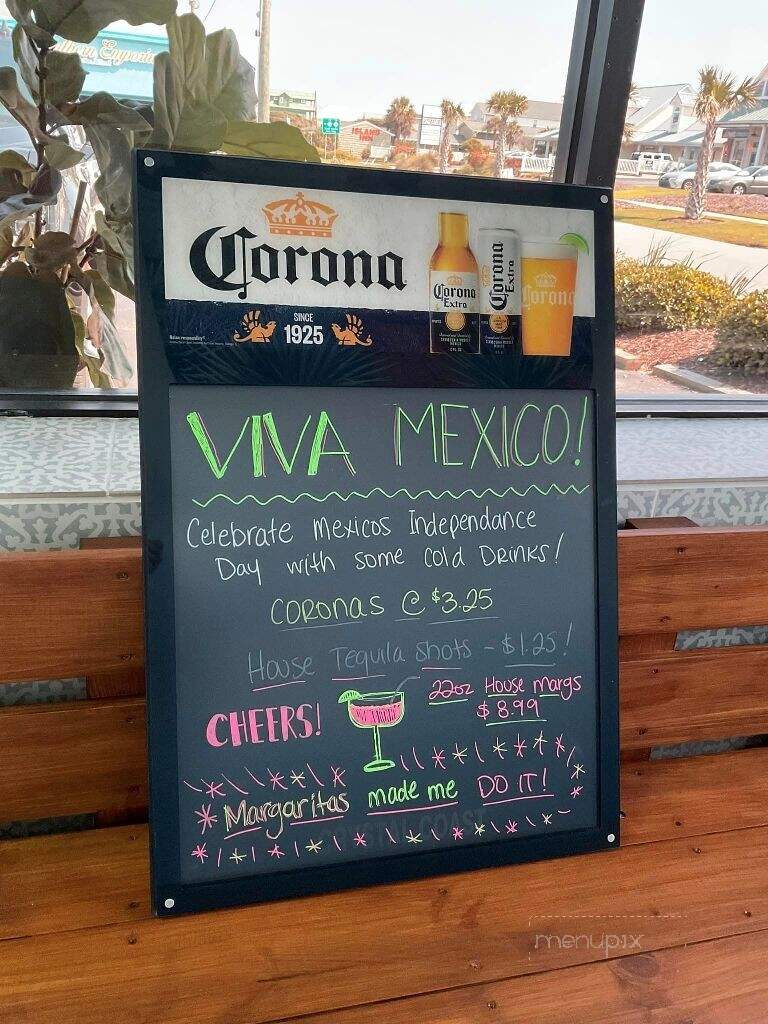 Island
INN
Corona
SINCE
1925
Corona
Extra
Corona
Extra
Corona
VIVA MEXICO!
Celebrate Mexicos Independance
Day with some cold Drinks!
CORONAS @ $3.25
House Tequila shots - $1.25!
22oz House margs
$8.99
CHEERS!
Margaritas made me DO IT!
menupix